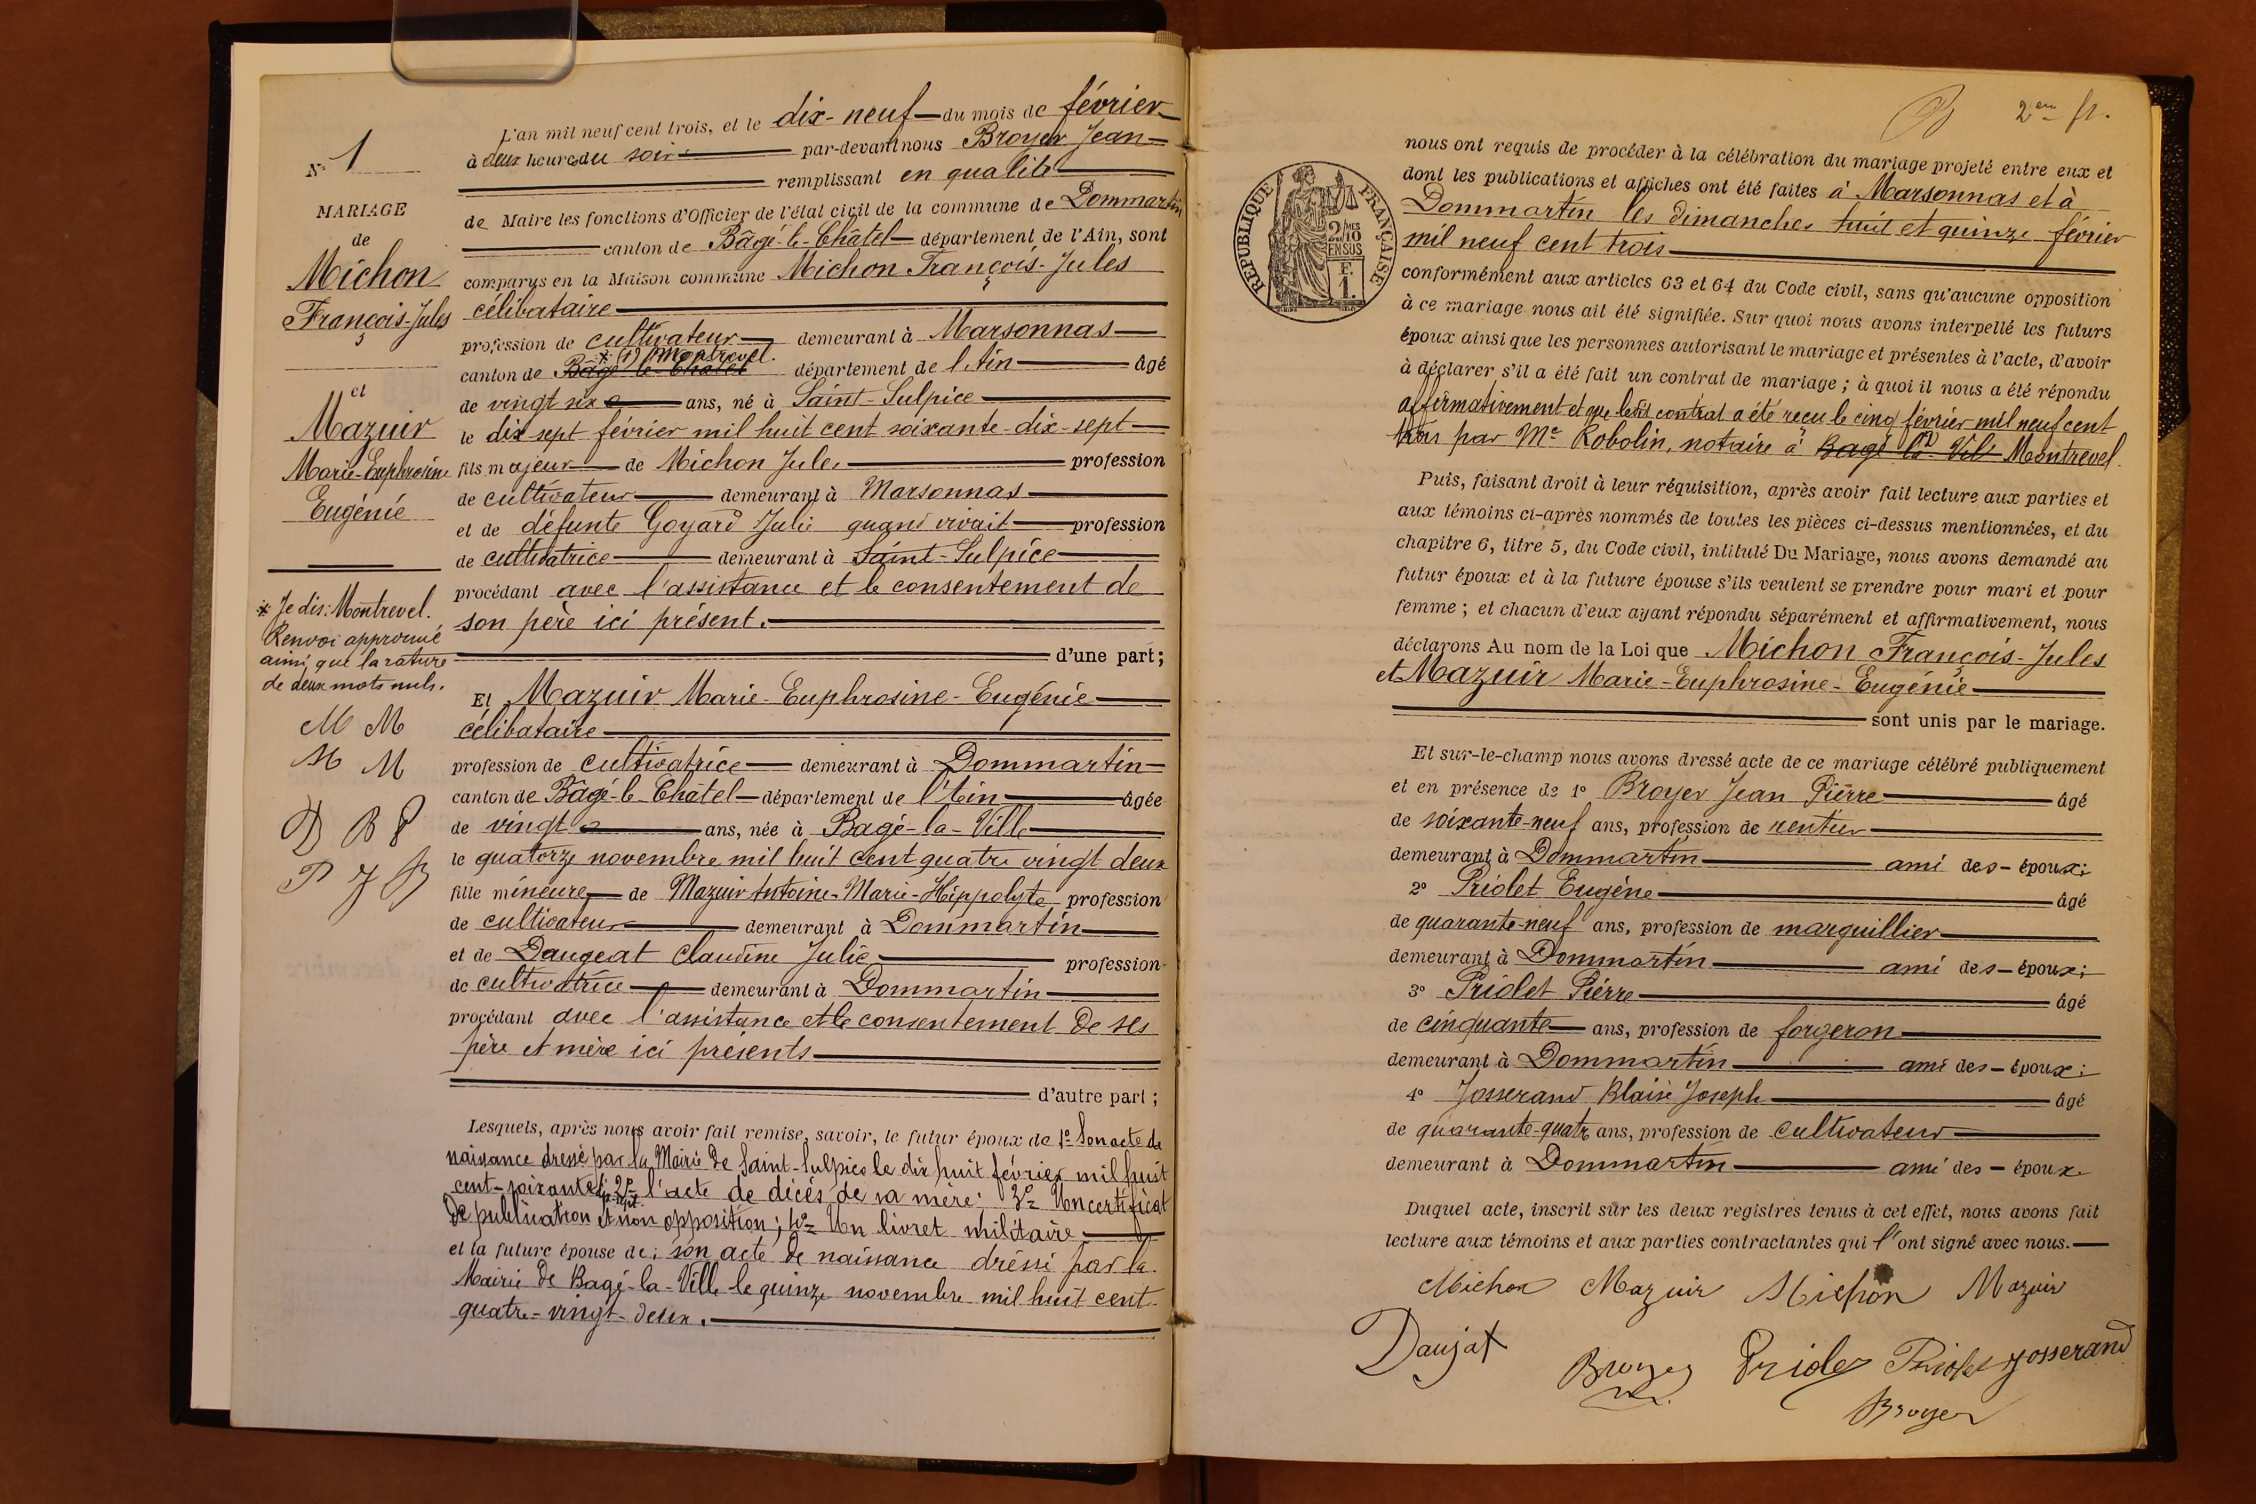 N° 1
MARIAGE
de
Michon
François-Jules
et
Mazuir
Marie-Euphrosine
Eugénie
* Je dis: Montrevel.
Renvoi approuvé
ainsi que la rature
de deux mots nuls.
M M
M M
D B P
P J B
L'an mil neuf cent trois, et le dix-neuf du mois de février
à deux heures du soir par-devant nous Broyer Jean
remplissant en qualité
de Maire les fonctions d'Officier de l'état civil de la commune de Dommartin
canton de Bâgé-le-Châtel département de l'Ain, sont
comparus en la Maison commune Michon François-Jules
célibataire
profession de cultivateur demeurant à Marsonnas
* (1) Montrevel.
canton de Bâgé-le-Châtel département de l'Ain âgé
de vingt six ans, né à Saint-Sulpice
le dix sept février mil huit cent soixante-dix-sept
fils majeur de Michon Jules profession
de cultivateur demeurant à Marsonnas
et de défunte Goyard Julie quand vivait profession
de cultivatrice demeurant à Saint-Sulpice
procédant avec l'assistance et le consentement de
son père ici présent.
d'une part;
Et Mazuir Marie-Euphrosine-Eugénie
célibataire
profession de cultivatrice demeurant à Dommartin
canton de Bâgé-le-Châtel département de l'Ain âgée
de vingt ans, née à Bagé-la-Ville
le quatorze novembre mil huit cent quatre vingt deux
fille mineure de Mazuir Antoine-Marie-Hippolyte profession
de cultivateur demeurant à Dommartin
et de Daugeat Claudine Julie profession
de cultivatrice demeurant à Dommartin
procédant avec l'assistance et le consentement de ses
père et mère ici présents
d'autre part;
Lesquels, après nous avoir fait remise, savoir, le futur époux de 1° Son acte de
naissance dressé par la Mairie de Saint-Sulpice le dix huit février mil huit
cent-soixante-dix-sept; 2° l'acte de décès de sa mère; 3° Un certificat
de publication et non opposition; 4° Un livret militaire
et la future épouse de: son acte de naissance dressé par la
Mairie de Bagé-la-Ville le quinze novembre mil huit cent
quatre-vingt-deux.
B 2em f.
REPUBLIQUE FRANÇAISE
2/10 MES
EN SUS
F.
1.
nous ont requis de procéder à la célébration du mariage projeté entre eux et
dont les publications et affiches ont été faites à Marsonnas et à
Dommartin les dimanches huit et quinze février
mil neuf cent trois
conformément aux articles 63 et 64 du Code civil, sans qu'aucune opposition
à ce mariage nous ait été signifiée. Sur quoi nous avons interpellé les futurs
époux ainsi que les personnes autorisant le mariage et présentes à l'acte, d'avoir
à déclarer s'il a été fait un contrat de mariage; à quoi il nous a été répondu
affirmativement et que ledit contrat a été reçu le cinq février mil neuf cent
trois par Me Robolin, notaire à Bagé-la-Ville (1) Montrevel.
Puis, faisant droit à leur réquisition, après avoir fait lecture aux parties et
aux témoins ci-après nommés de toutes les pièces ci-dessus mentionnées, et du
chapitre 6, titre 5, du Code civil, intitulé Du Mariage, nous avons demandé au
futur époux et à la future épouse s'ils veulent se prendre pour mari et pour
femme; et chacun d'eux ayant répondu séparément et affirmativement, nous
déclarons Au nom de la Loi que Michon François-Jules
et Mazuir Marie-Euphrosine-Eugénie
sont unis par le mariage.
Et sur-le-champ nous avons dressé acte de ce mariage célébré publiquement
et en présence de 1° Broyer Jean Pierre âgé
de soixante-neuf ans, profession de rentier
demeurant à Dommartin ami des époux;
2° Priolet Eugène âgé
de quarante-neuf ans, profession de marguillier
demeurant à Dommartin ami des époux;
3° Priolet Pierre âgé
de cinquante ans, profession de forgeron
demeurant à Dommartin ami des époux;
4° Josserand Blaise Joseph âgé
de quarante-quatre ans, profession de cultivateur
demeurant à Dommartin ami des époux
Duquel acte, inscrit sur les deux registres tenus à cet effet, nous avons fait
lecture aux témoins et aux parties contractantes qui l'ont signé avec nous.
Michon Mazuir Michon Mazuir
Daujat Broyer Priolet Priolet Josserand
Broyer